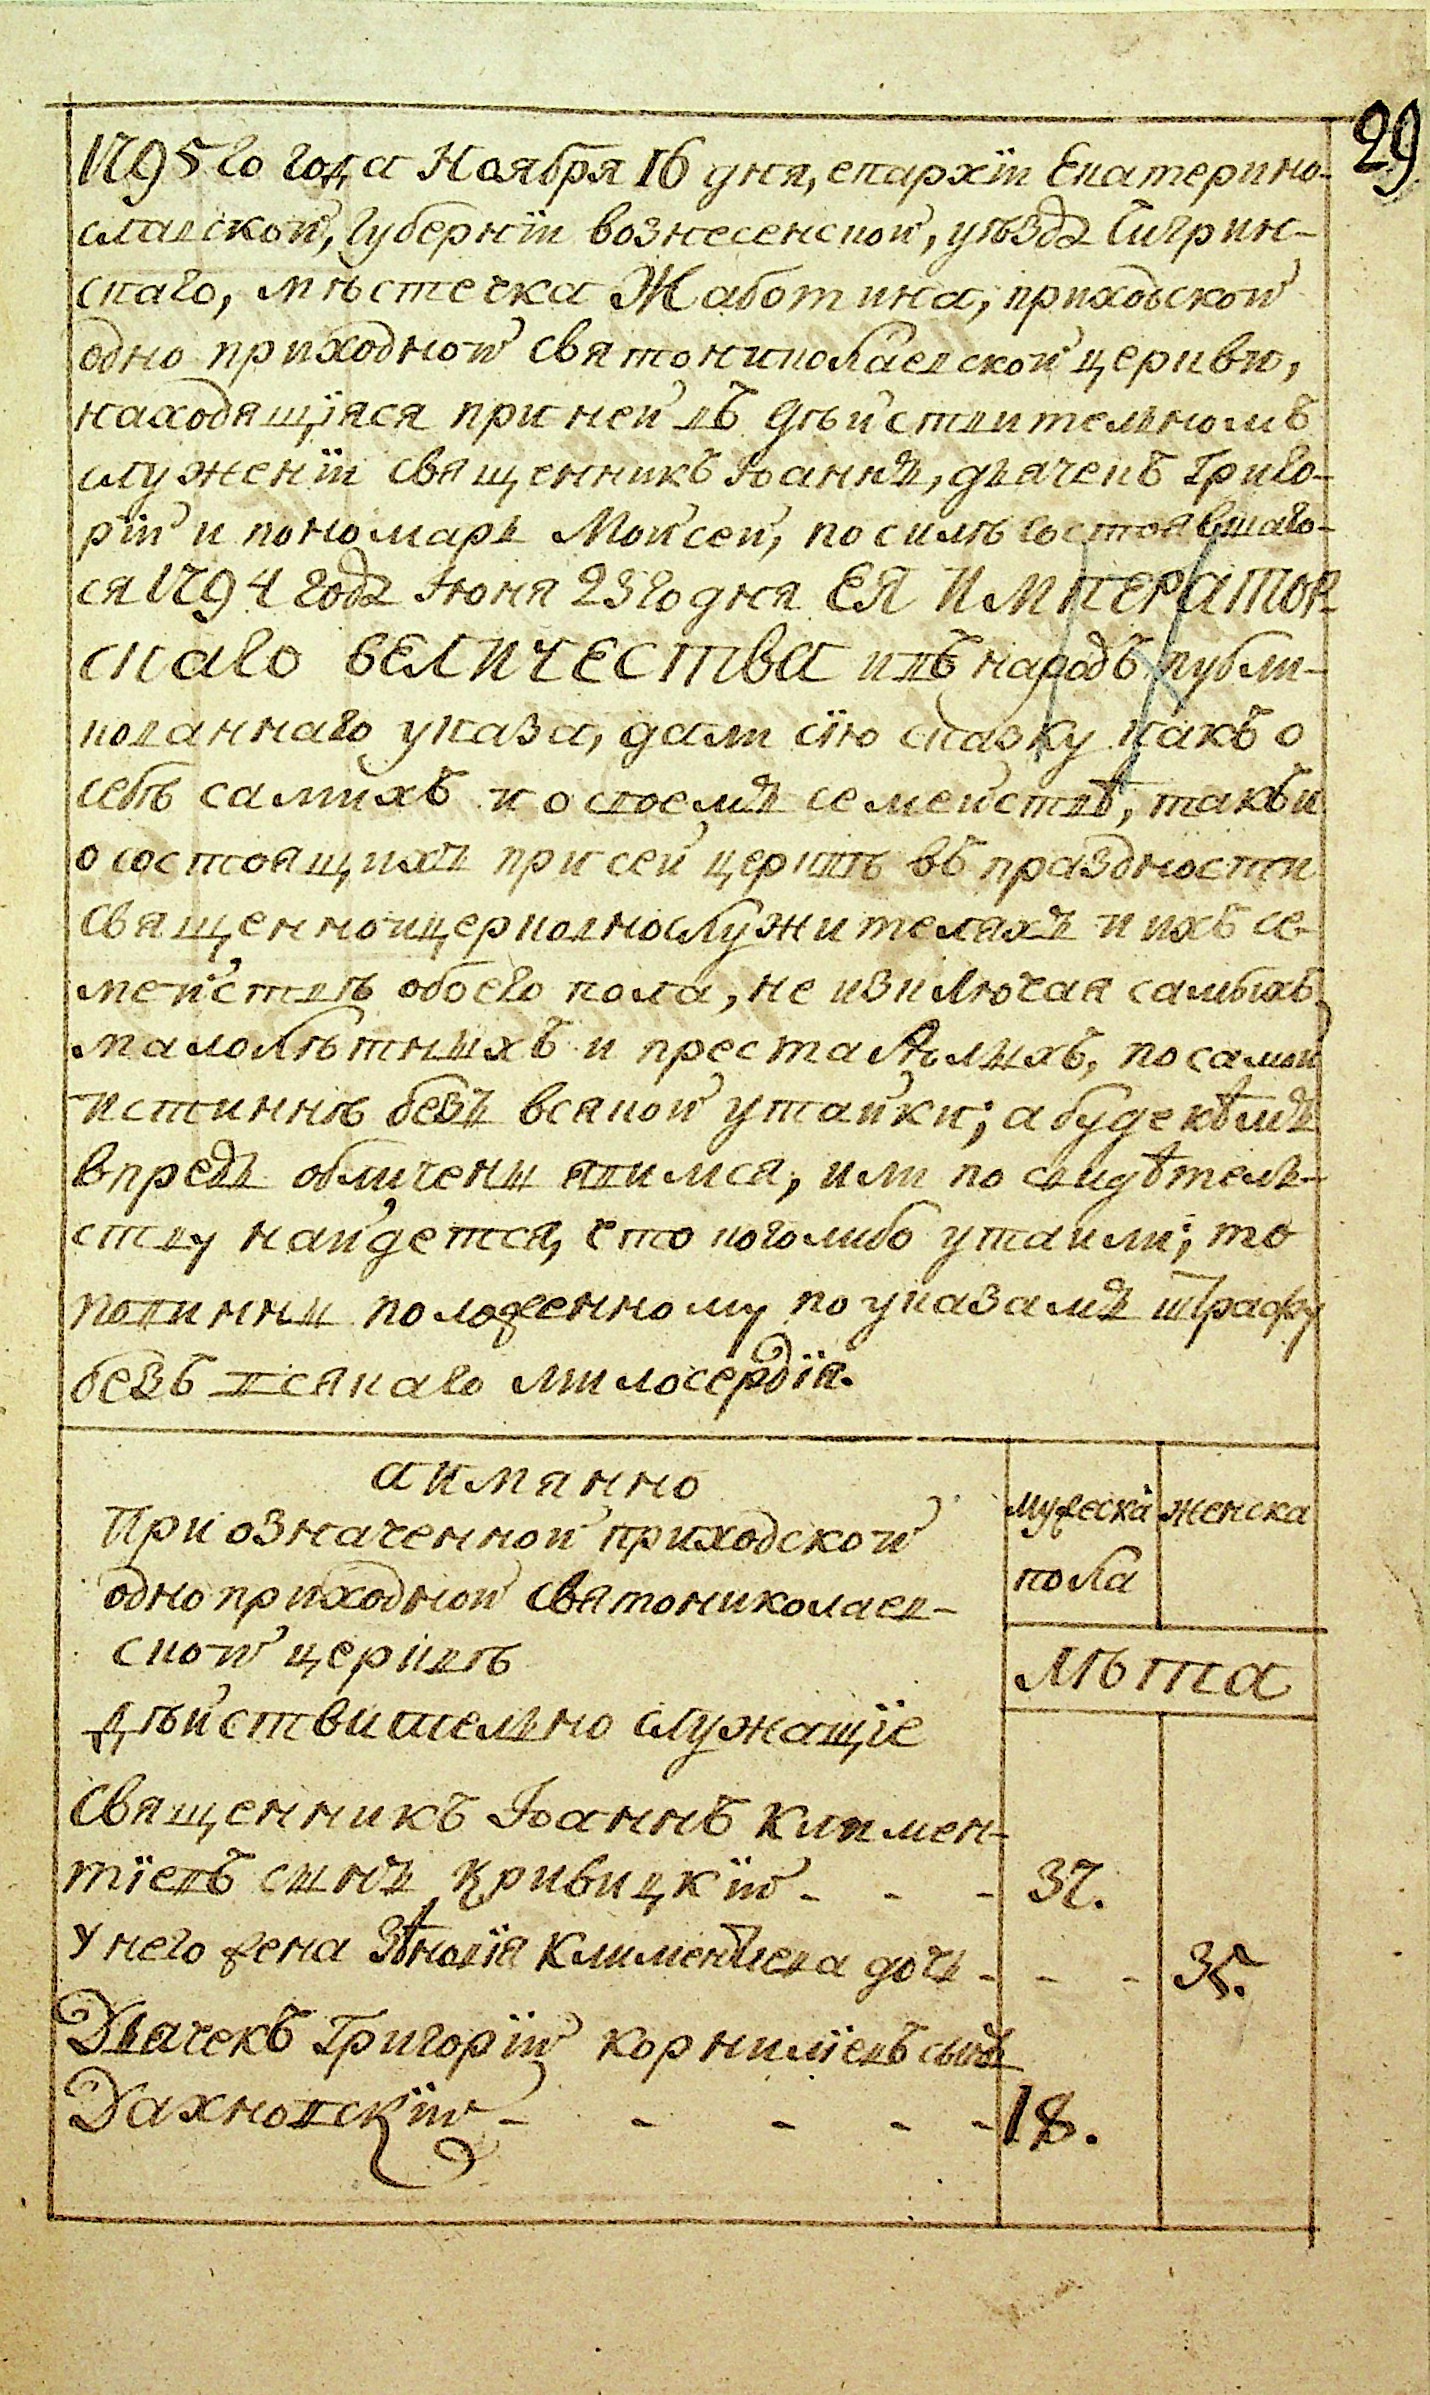 29
1795го года Ноября 16 дня, епархїи Екатерино-
славской, губернїи вознесенской, уѣзда Чигрин-
скаго, мѣстечка Жаботина, приходской
одно приходной святониколаевской церкви,
находящїяся при ней въ дѣйствительномъ
служенїи священникъ Іоаннъ, дьячекъ Григо-
рїй и пономарь Мойсей, по силѣ состоявшаго-
ся 1794 года Июня 23го дня ЕЯ ИМПЕРАТОР-
скаго ВЕЛИЧЕСТВА и въ народъ публи-
кованнаго указа, дали сїю сказку какъ о
себѣ самихъ и о своемъ семействѣ, такъ и
о состоящихъ при сей церквѣ въ праздности
священноицерковнослужителяхъ и ихъ се-
мействѣ обоего пола, не изключая самыхъ
малолѣтныхъ и престарѣлыхъ, по самой
истиннѣ безъ всякой утайки; а буде кѣмъ
впредь обличены явимся, или по свидѣтель-
ству найдется, что кого либо утаили; то
повинны положенному по указамъ штрафу
безъ всякаго милосердїя.
а имянно
При означенной приходской
одно приходной святониколаев-
ской церквѣ
дѣйствительно служащїе
мужеска женска
пола
лѣта
Священникъ Іоаннъ Климен-
тїевъ сынъ Кривицкїй - - - 37.
У него жена Зѣновїя Климентїева дочь - - - 35.
Дьячекъ Григорїй корнилїевъ сынъ
Дахновскїй - - - - - 18.